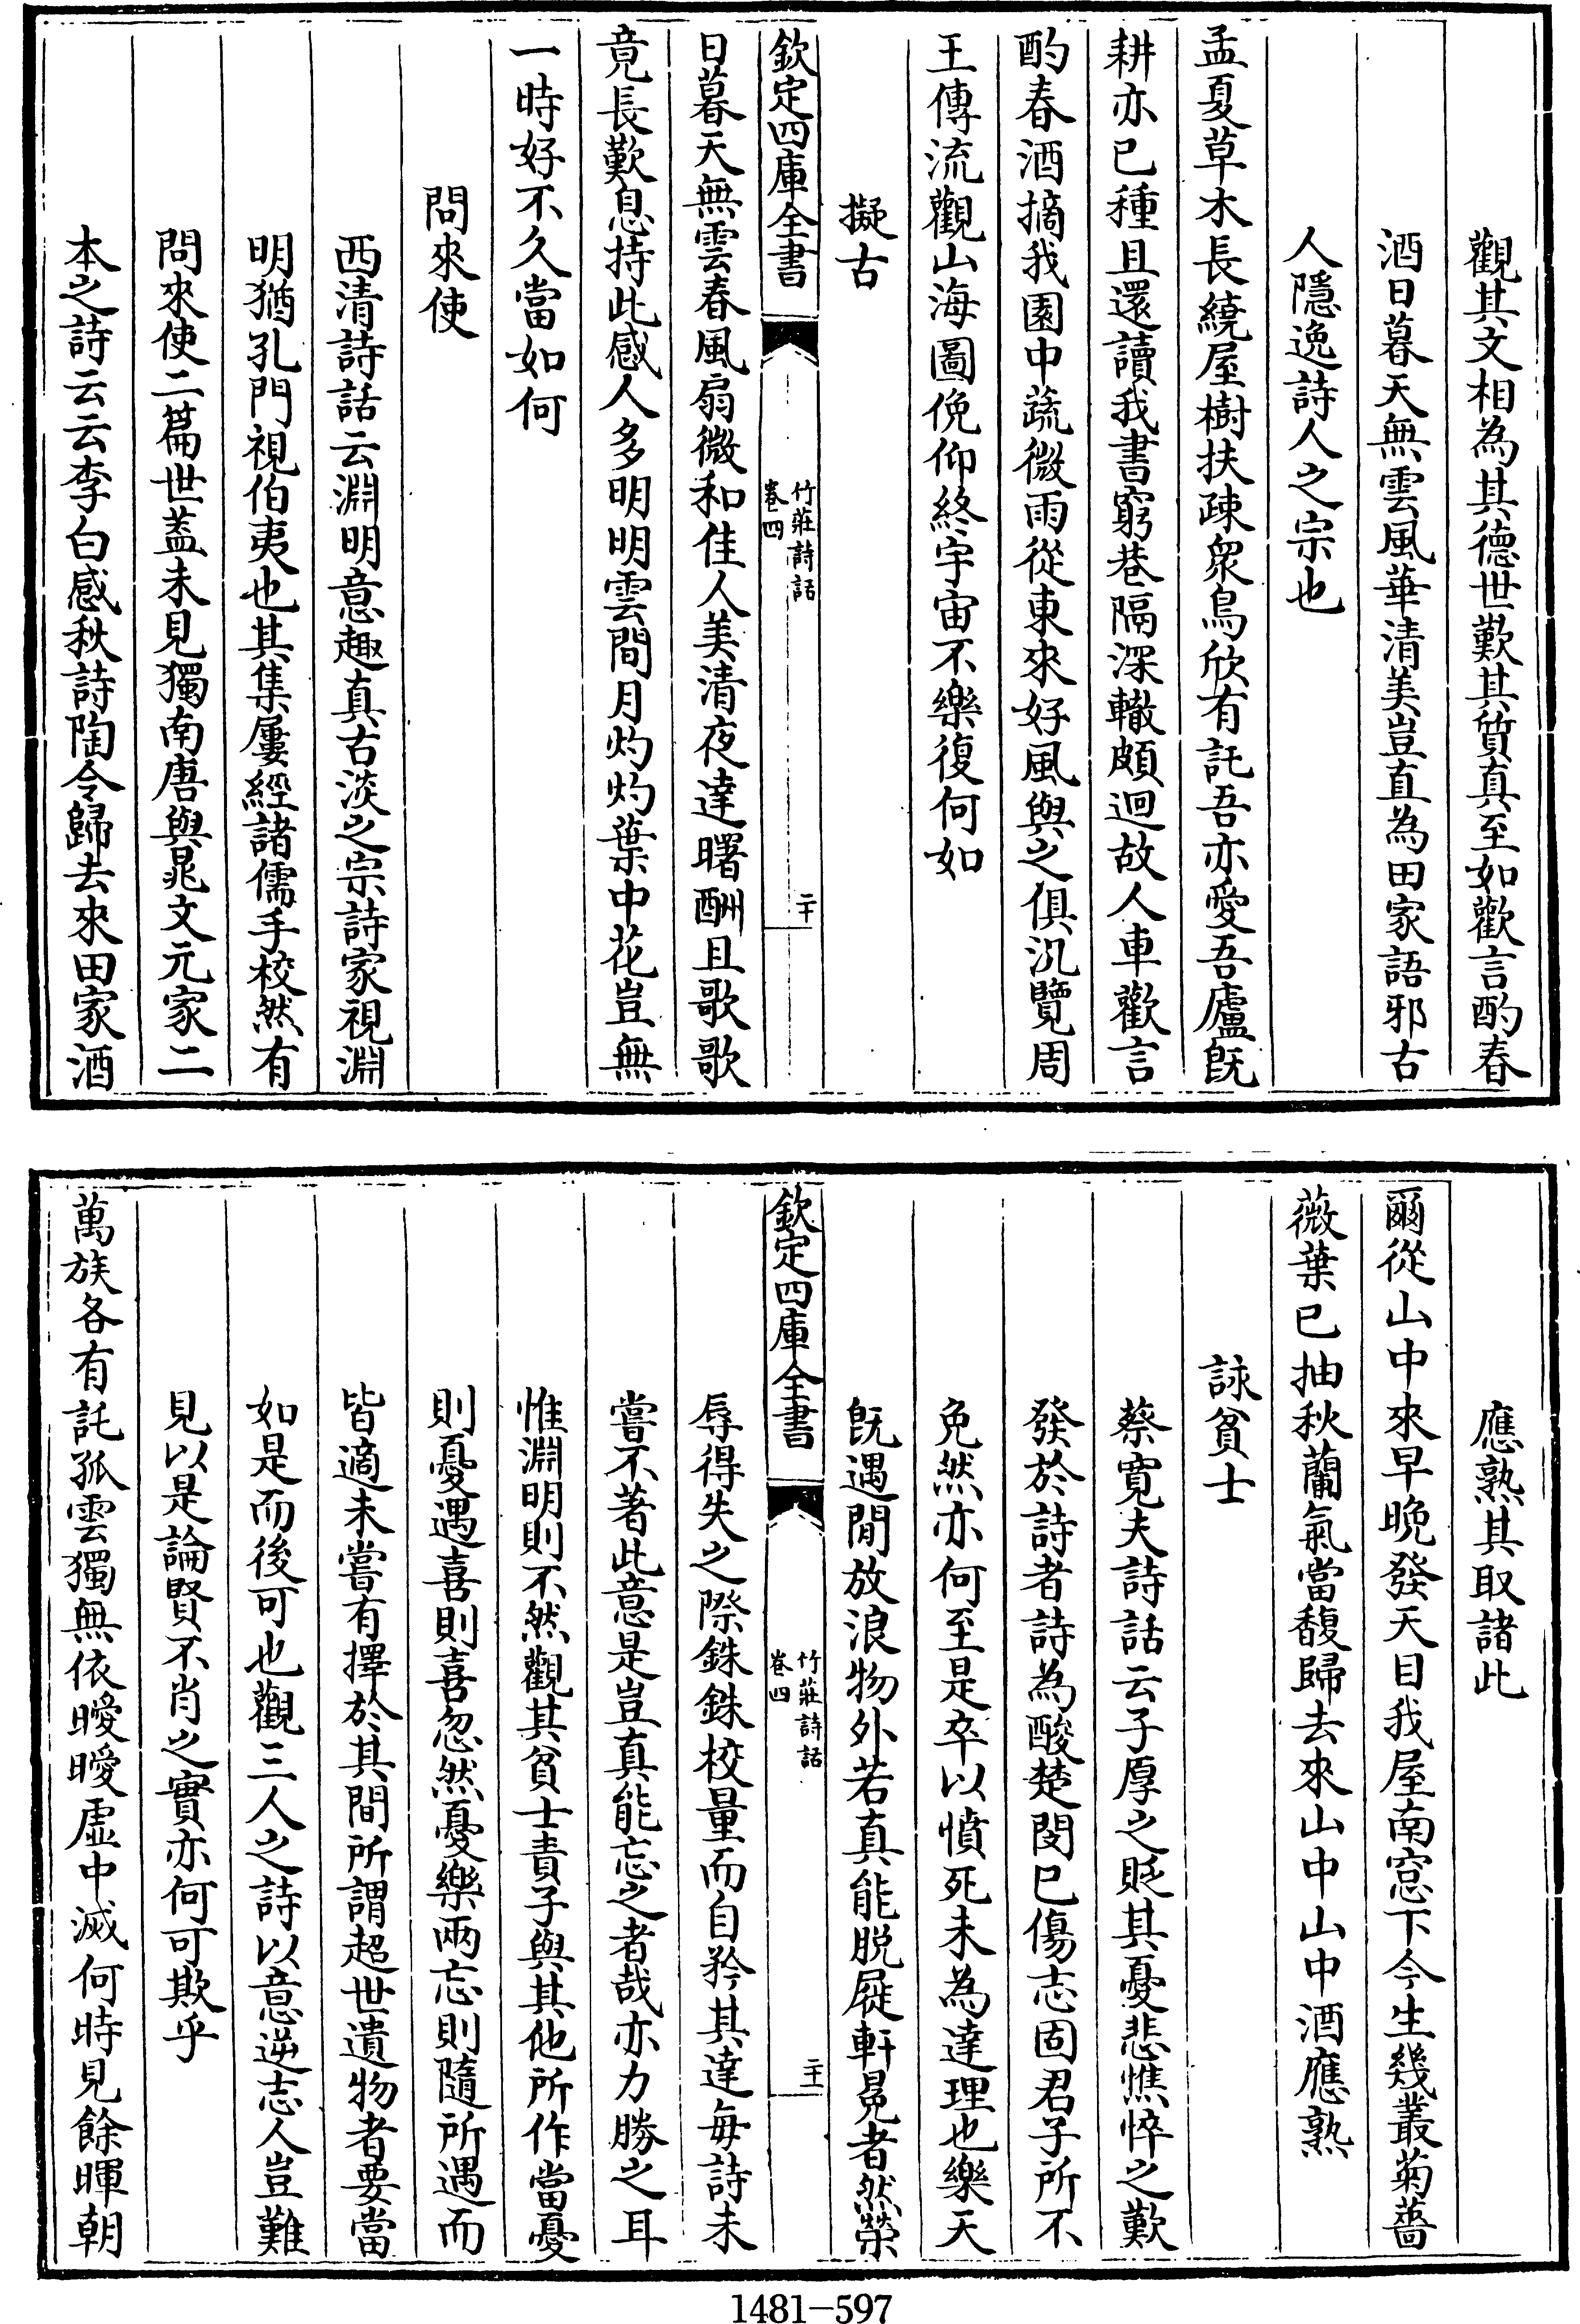 觀其文相為其德世歎其質真至如歡言酌春
酒日暮天無雲風華清美豈直為田家語邪古
人隱逸詩人之宗也
孟夏草木長繞屋樹扶疎衆鳥欣有託吾亦愛吾廬旣
耕亦已種且還讀我書窮巷隔深轍頗迴故人車歡言
酌春酒摘我園中蔬微雨從東來好風與之俱汎覽周
王傳流觀山海圖俛仰終宇宙不樂復何如
擬古
欽定四庫全書
竹莊詩話
卷四
二十
日暮天無雲春風扇微和佳人美清夜達曙酬且歌歌
竟長歎息持此感人多明明雲間月灼灼葉中花豈無
一時好不久當如何
問來使
西清詩話云淵明意趣真古淡之宗詩家視淵
明猶孔門視伯夷也其集屢經諸儒手校然有
問來使二篇世蓋未見獨南唐與晁文元家二
本之詩云云李白感秋詩陶令歸去來田家酒
應熟其取諸此
爾從山中來早晚發天目我屋南窓下今生幾叢菊薔
薇葉已抽秋蘭氣當馥歸去來山中山中酒應熟
詠貧士
蔡寛夫詩話云子厚之貶其憂悲憔悴之歎
發於詩者詩為酸楚閔已傷志固君子所不
免然亦何至是卒以憤死未為達理也樂天
旣遇閒放浪物外若真能脱屣軒冕者然榮
欽定四庫全書
竹莊詩話
卷四
二十一
辱得失之際銖銖校量而自矜其達每詩未
嘗不著此意是豈真能忘之者哉亦力勝之耳
惟淵明則不然觀其貧士責子與其他所作當憂
則憂遇喜則喜忽然憂樂兩忘則隨所遇而
皆適未嘗有擇於其間所謂超世遺物者要當
如是而後可也觀三人之詩以意逆志人豈難
見以是論賢不肖之實亦何可欺乎
萬族各有託孤雲獨無依曖曖虛中滅何時見餘暉朝
1481-597